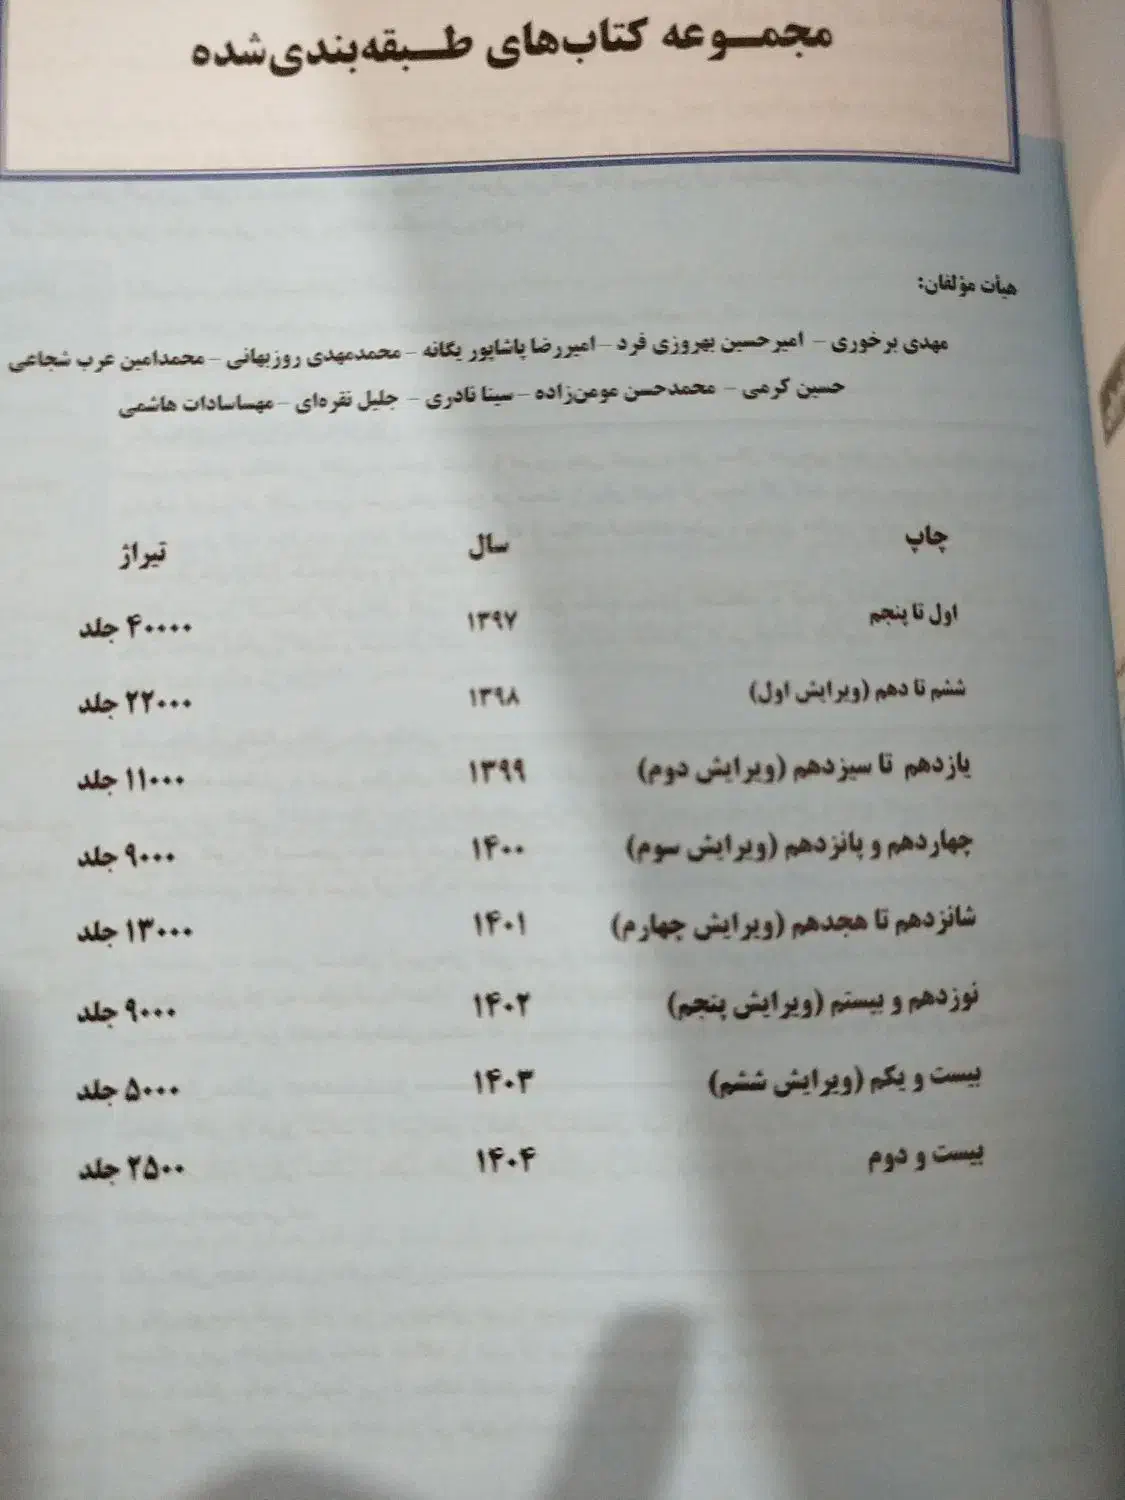 مجمـــوعه کتاب‌های طـــبقه‌بندی‌شده
هیأت مؤلفان:
مهدی برخوری - امیرحسین بهروزی فرد - امیررضا پاشاپور یگانه - محمدمهدی روزبهانی - محمدامین عرب شجاعی
حسین کرمی - محمدحسن مومن‌زاده - سینا نادری - جلیل نقره‌ای - مهساسادات هاشمی
چاپ سال تیراژ
اول تا پنجم ۱۳۹۷ ۴۰۰۰۰ جلد
ششم تا دهم (ویرایش اول) ۱۳۹۸ ۲۲۰۰۰ جلد
یازدهم تا سیزدهم (ویرایش دوم) ۱۳۹۹ ۱۱۰۰۰ جلد
چهاردهم و پانزدهم (ویرایش سوم) ۱۴۰۰ ۹۰۰۰ جلد
شانزدهم تا هجدهم (ویرایش چهارم) ۱۴۰۱ ۱۳۰۰۰ جلد
نوزدهم و بیستم (ویرایش پنجم) ۱۴۰۲ ۹۰۰۰ جلد
بیست و یکم (ویرایش ششم) ۱۴۰۳ ۵۰۰۰ جلد
بیست و دوم ۱۴۰۴ ۲۵۰۰ جلد